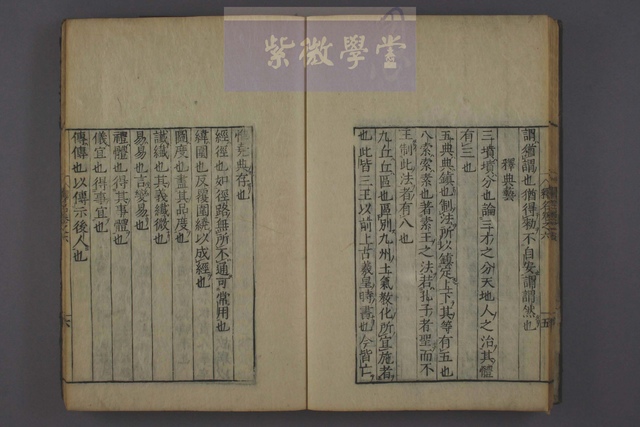 紫微學堂
謂猶謂也猶得勑不自安謂謂然也
釋典藝
三墳墳分也論三才之分天地人之治其體
有三也
五典典鎮也制法所以鎮定上下其等有五也
八索索素也著素王之法若孔子者聖而不
王制此法者有八也
九丘丘區也區別九州土氣敎化所宜施者
也此皆三王以前上古羲皇時書也今皆亡
惟堯典存也
經徑也如徑路無所不通可常用也
緯圍也反覆圍繞以成經也
圖度也畫其品度也
讖纖也其義纖微也
易易也言變易也
禮體也得其事體也
儀宜也得事宜也
傳傳也以傳示後人也
五
六